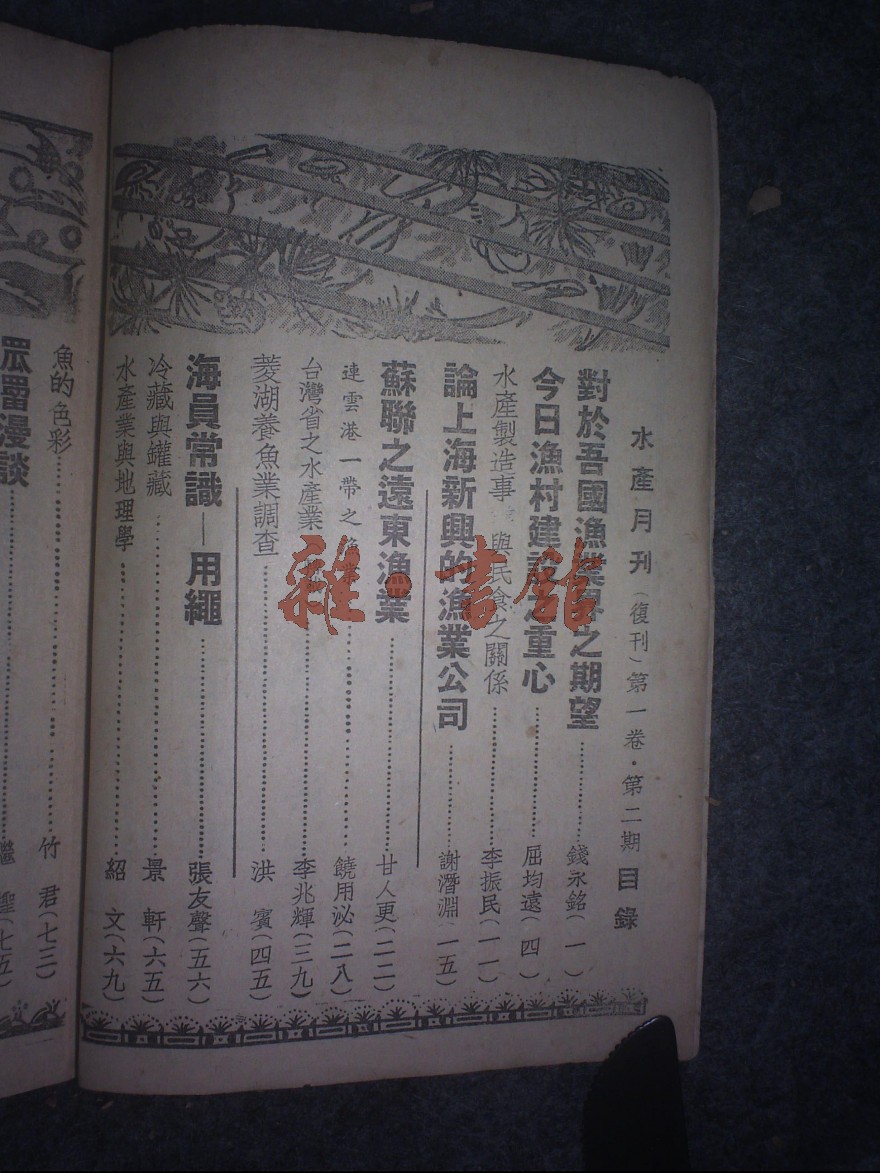 水產月刊（復刊）第一卷・第二期目錄
對於吾國漁業界之期望……錢永銘（一）
今日漁村建設之重心……屈均遠（四）
水產製造事 與民食之關係……李振民（一一）
論上海新興的漁業公司……謝潛淵（一五）
蘇聯之遠東漁業……甘人更（二二）
連雲港一帶之漁……饒用泌（二八）
台灣省之水產業……李兆輝（三九）
菱湖養魚業調查……洪賓（四五）
海員常識—用繩……張友聲（五六）
冷藏與鑵藏……景軒（六五）
水產業與地理學……紹文（六九）
魚的色彩……竹君（七三）
漫談……（七五）
雜・書館